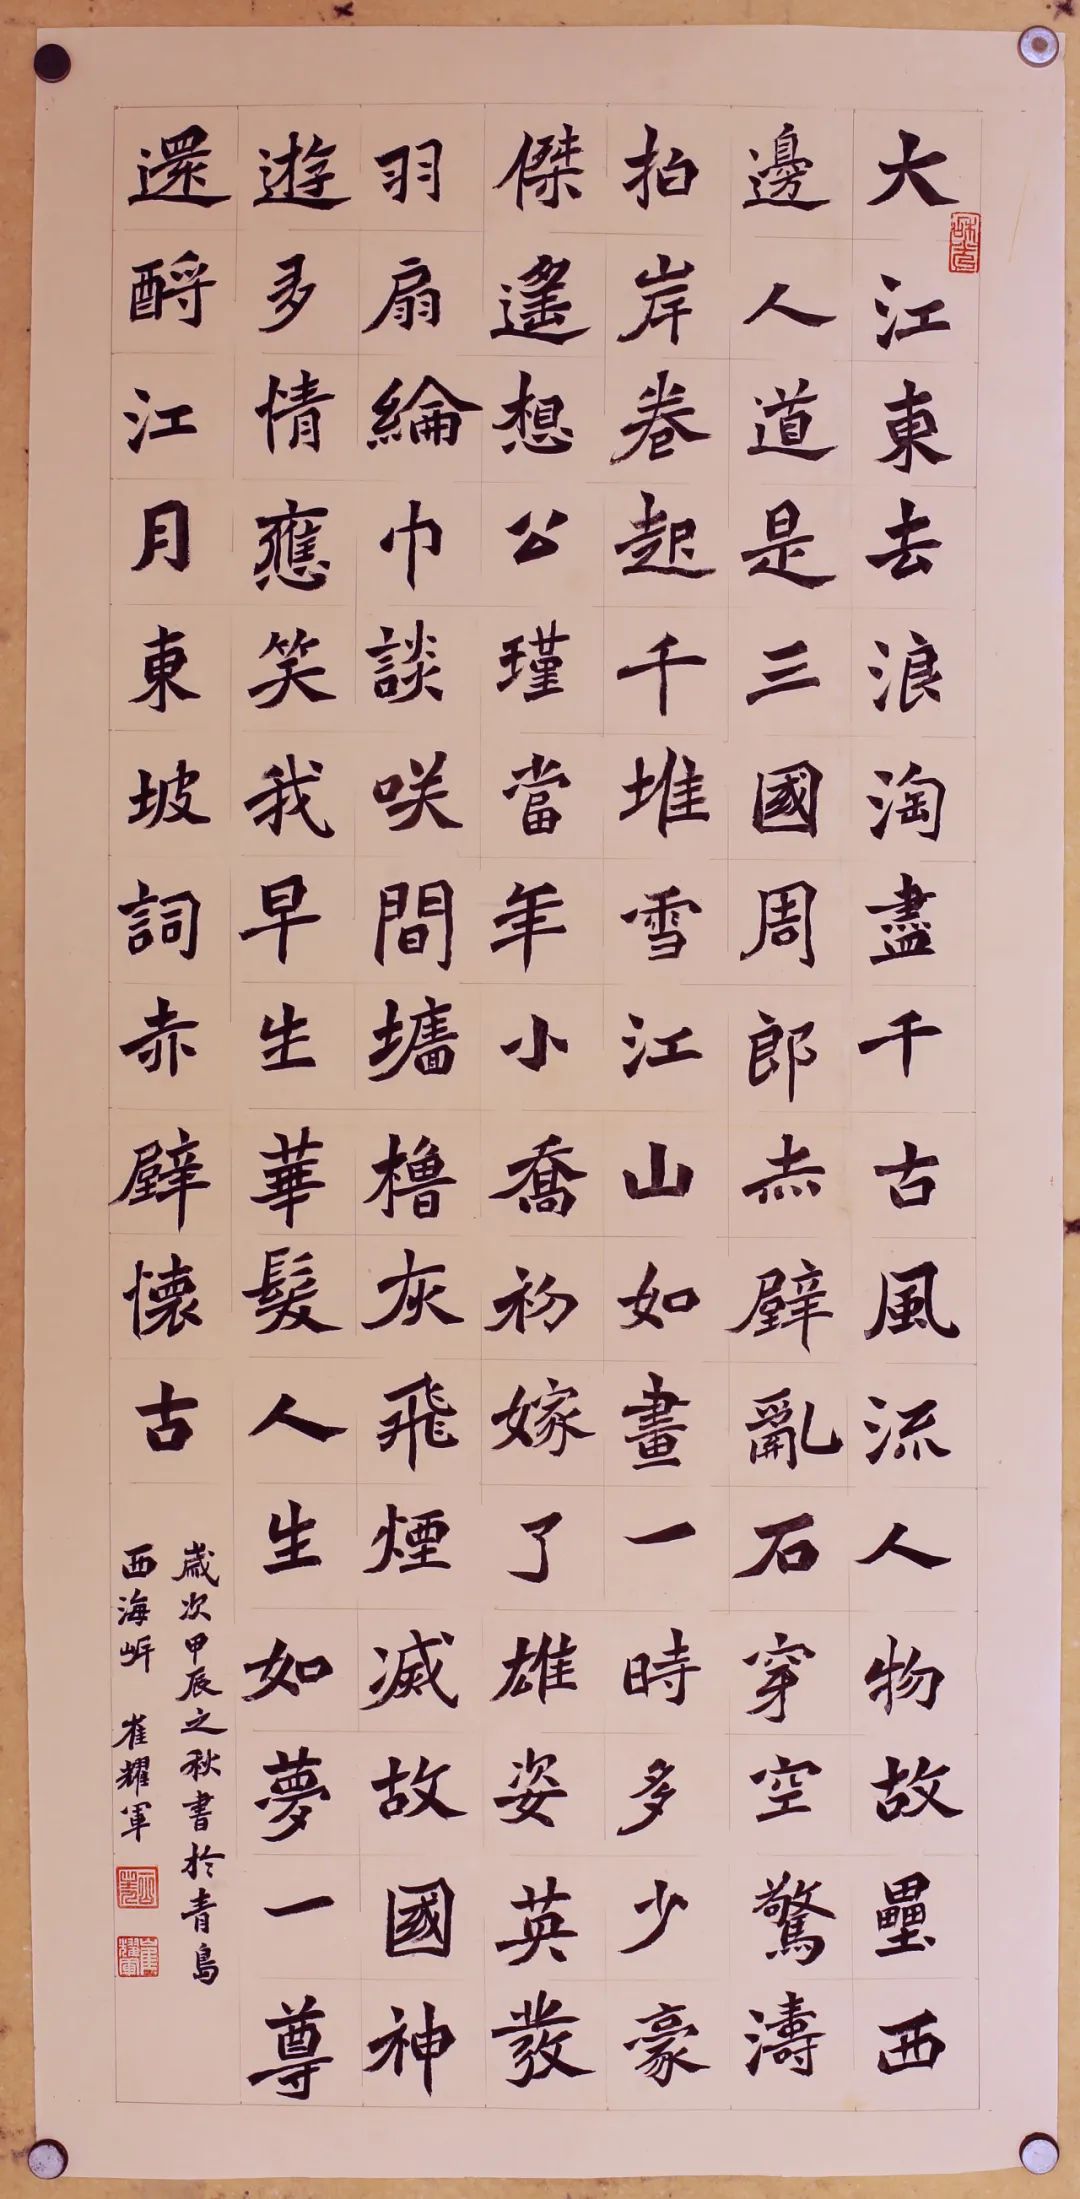 大江東去浪淘盡千古風流人物故壘西
邊人道是三國周郎赤壁亂石穿空驚濤
拍岸卷起千堆雪江山如畫一時多少豪
傑遙想公瑾當年小喬初嫁了雄姿英發
羽扇綸巾談咲間墻櫓灰飛煙滅故國神
遊多情應笑我早生華髮人生如夢一尊
還酹江月東坡詞赤壁懷古
歲次甲辰之秋書於青島
西海岸 崔耀軍